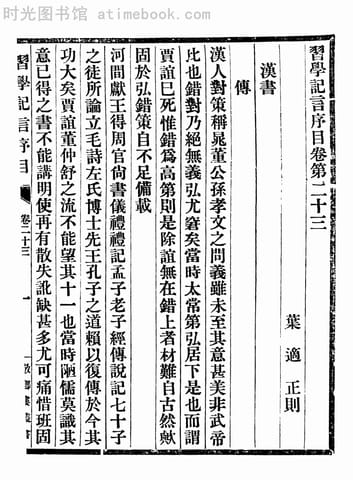 时光图书馆·atimebook.com
習學記言序目卷第二十三
葉適 正則
漢書
傳
漢人對策稱晁董公孫孝文之問義雖未至其意甚美非武帝
比也錯對乃絕無義弘尤窘矣當時太常第弘居下是也而謂
賈誼已死惟錯爲高第則是除誼無在錯上者材難自古然歟
固於弘錯策自不足備載
河間獻王得周官尙書儀禮禮記孟子老子經傳說記七十子
之徒所論立毛詩左氏博士先王孔子之道賴以復傳於今其
功大矣賈誼董仲舒之流不能望其十一也當時陋儒莫識其
意已得之書不能講明使再有散失訛缺甚多尤可痛惜班固
習學記言序目
卷二十三
一
敬鄉樓叢書